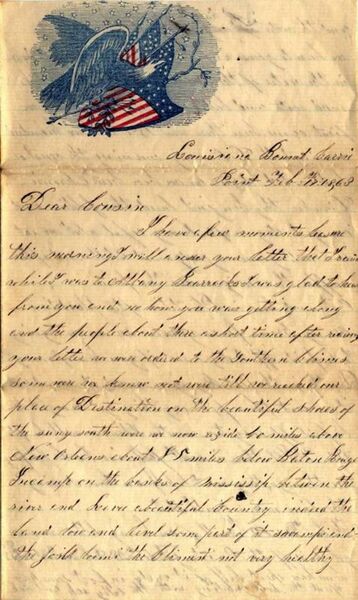 Louisiana Bonnet Carrie
Point Feb 1863
Dear Cousin
I have a few moments leasure
this morning I will answer your letter that I receiv
whilst I was to Albany Barracks I was glad to hear
from you and no how you was getting along
and the people about there a short time after reciving
your letter we were ordered to the Southern Climes
som were we knew not were till we reached our
place of Destination on the beautiful shores of
the suny south were we now reside 60 miles above
New Orleens about 85 miles below Baton Rouge
Incamp on the banks of Mississip between the
river and Levee a beautiful Country indeed the
Land low and level some part of it swampe and
the foild the Climent not very healthy